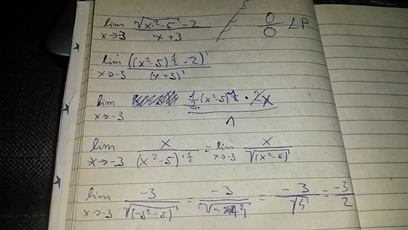 lim x→-3 (√(x²-5) - 2)/(x+3) 0/0 LP
lim x→-3 ((x²-5)^½ - 2)'/(x+3)'
lim x→-3 (½(x²-5)^-½ · 2x)/1
lim x→-3 x/(x²-5)^½ = lim x→-3 x/√(x²-5)
lim x→-3 -3/√(-3²-5) = -3/√ = -3/√4 = -3/2